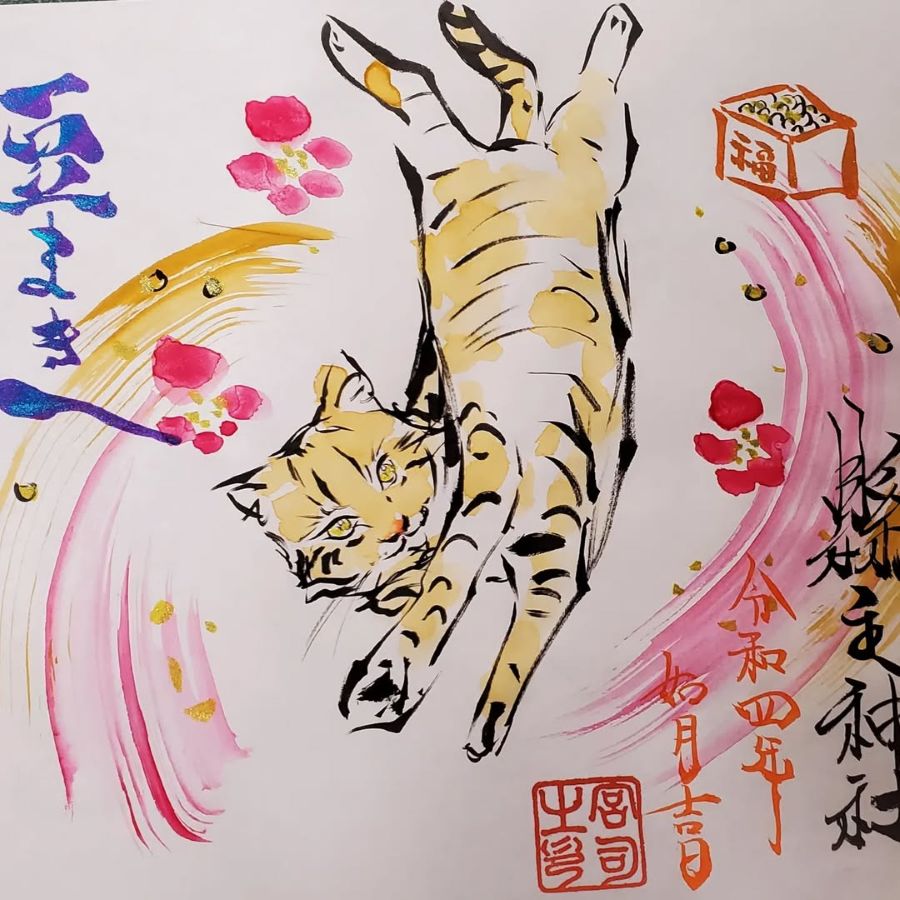 縣主神社
福
令和四年
如月吉日
宮司
之印
豆まき